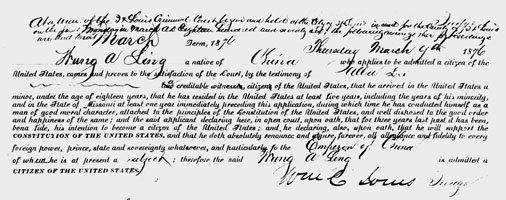 At a term of the St Louis Criminal Court begun and held at the City of St Louis in and for the County of St Louis
on the first Monday in March A D Eighteen hundred and seventy six, the following among other proceedings
were had
March Term, 1876 Thursday March 9th 1876
Wung A Ling a native of China who applies to be admitted a citizen of the
United States, comes and proves to the satisfaction of the Court, by the testimony of
two creditable witnesses, citizens of the United States, that he arrived in the United States a
minor, under the age of eighteen years, that he has resided in the United States at least five years, including the years of his minority,
and in the State of Missouri at least one year immediately preceding this application, during which time he has conducted himself as a
man of good moral character, attached to the principles of the Constitution of the United States, and well disposed to the good order
and happiness of the same; and the said applicant declaring here, in open court, upon oath, that for three years last past it has been,
bona fide, his intention to become a citizen of the United States; and he declaring, also, upon oath, that he will support the
CONSTITUTION OF THE UNITED STATES, and that he doth absolutely renounce and abjure, forever, all allegiance and fidelity to every
foreign power, prince, state and sovereignty whatsoever, and particularly to the Emperor of China
of whom he is at present a subject; therefore the said Wung A Ling is admitted a
CITIZEN OF THE UNITED STATES.
Wm C Jones Judge